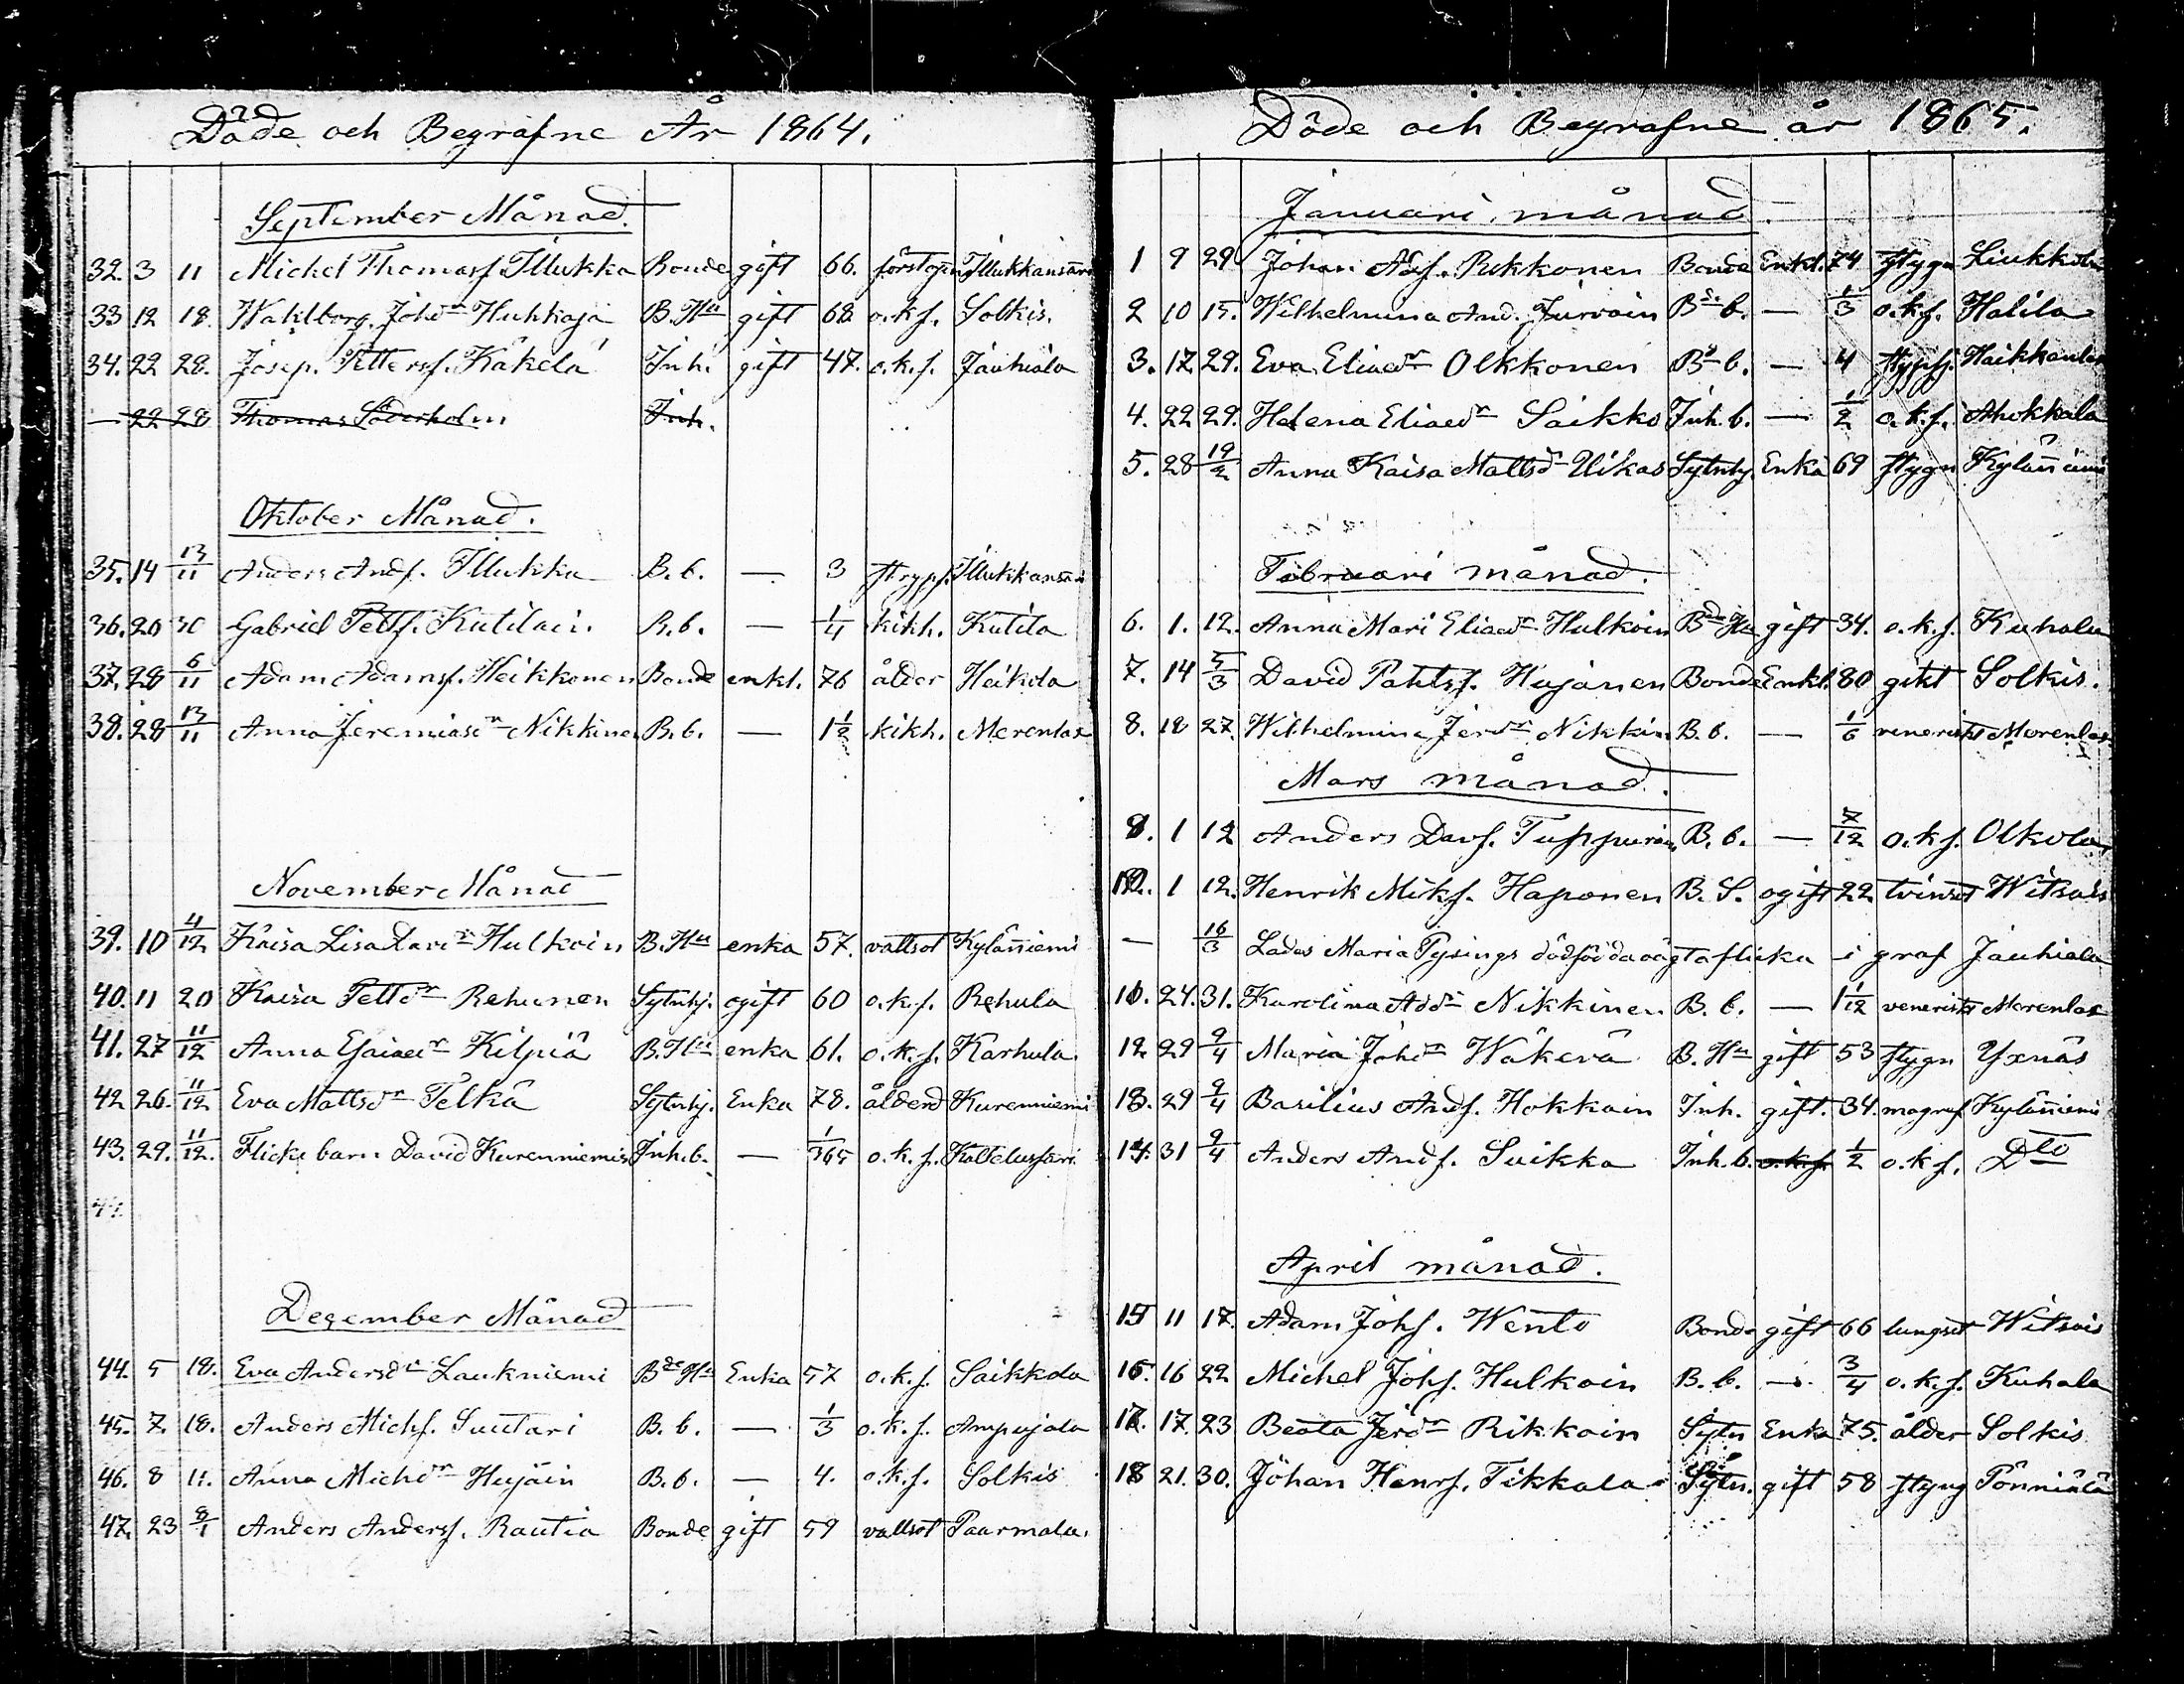 Döde och Begrafne År 1864.
September Månad.
32. 3 11 Michel Thomasf. Illukka Bonde gift 66. förstopn Illukkansari
33 12 18. Wahlborg Johdr Huhkaja B. Hu gift 68. o.k.f. Solkis.
34. 22 28. Josep. Pettersf. Käkelä Inh. gift 47. o.k.f. Jauhiala
— 22 28 Thomas Söderholm Inh.
Oktober Månad.
35. 14 13/11 Anders Andf. Illukka B. b. — 3 strypf. Illukkansari
36. 20 30 Gabriel Pettf. Kutilain. B. b. — 1/4 kikh. Kutila
37. 28 6/11 Adam Adamsf. Heikkonen Bonde enkl. 76 ålder Heikola
38. 28 13/11 Anna Jeremiasdr Nikkinen B. b. — 1 1/2 kikh. Merenlax
November Månad
39. 10 4/12 Kaisa Lisa Davdr Hulkoin B. Hu enka 57. vattsot Kyläniemi
40. 11 20 Kaisa Pettdr Rehunen Sytnhj. ogift 60 o.k.f. Rehula
41. 27 11/12 Anna Esaiaedr Kilpiä B. Hu enka 61. o.k.f. Karhula.
42 26. 11/12 Eva Mattsdr Telkä Sytnhj. Enka 78. ålderd Kurenniemi
43. 29. 11/12. Flicke barn David Kurenniemis Inh. b. — 1/365 o.k.f. Kattelusfari
44.
December Månad
44. 5 18. Eva Andersdr Laukniemi Bde Hu Enka 57 o.k.f. Saikkola
45. 7. 18. Anders Michf. Suutari B. b. — 1/3 o.k.f. Ampujala
46. 8 11. Anna Michdr Hujäin B. b. — 4. o.k.f. Solkis
47. 23 8/1 Anders Andersf. Rautia Bonde gift 59 vattsot Paarmala.
Döde och Begrafne år 1865.
Januari månad.
1 9 29. Johan Adf. Pukkonen Bonde Enkl. 74 stygn Liukkola
2 10 15. Wilhelmina And. Jurvain Bde b. — 1/3 o.k.f. Halila
3. 17. 29. Eva Eliaedr Olkkonen Bde b. — 4 Haikkanlax
4. 22 29. Helena Eliaedr Saikko Inh. b. — 1/2 o.k.f. Ahokkala
5. 28 19/2 Anna Kaisa Mattsd Uikas Sytnhj. Enka 69 stygn Kyläniemi
Februari månad.
6. 1. 12. Anna Mari Eliaedr Hulkoin Bde Hu gift 34. o.k.f. Kuhala
7. 14 5/3 David Hujanen Bonde Enkl. 80 gikt Solkis.
8. 18 27. Wilhelmina Jerdr Nikkin B. b. — 1/6 venerisks Merenlax
Mars månad.
9. 1 12 Anders Davf. Tuppurain B. b. — 7/12 o.k.f. Olkola
10. 1 12. Henrik Mikf. Haponen B. S. ogift 22. tvinsot Witsais
— 16/3 Lades Maria Pysings dödfödda oägta flicka i graf Jauhiala
10. 24. 31. Karolina Addr Nikkinen B. b. — 1 1/12 venerisks Merenlax
12. 29 9/4 Maria Johdr Wäkevä B. Hu gift 53 stygn Yxnäs
13. 29 9/4 Basilius Andf. Hokkain Inh. gift. 34. magref Kyläniemi
14. 31 9/4 Anders Andf. Suikka Inh. b. o.k.f. 1/2 o.k.f. Dto
April månad.
15 11 17. Adam Johf. Wento Bonde gift 66 lungsot Witsais
16. 16 22 Michel Johf. Hulkoin B. b. — 3/4 o.k.f. Kuhala
17. 17. 23 Beata Jerdr Rikkoin Sytn Enka 75. ålder Solkis
18 21. 30. Johan Henrf. Tikkala Sytn. gift 58 styng Pönniälä